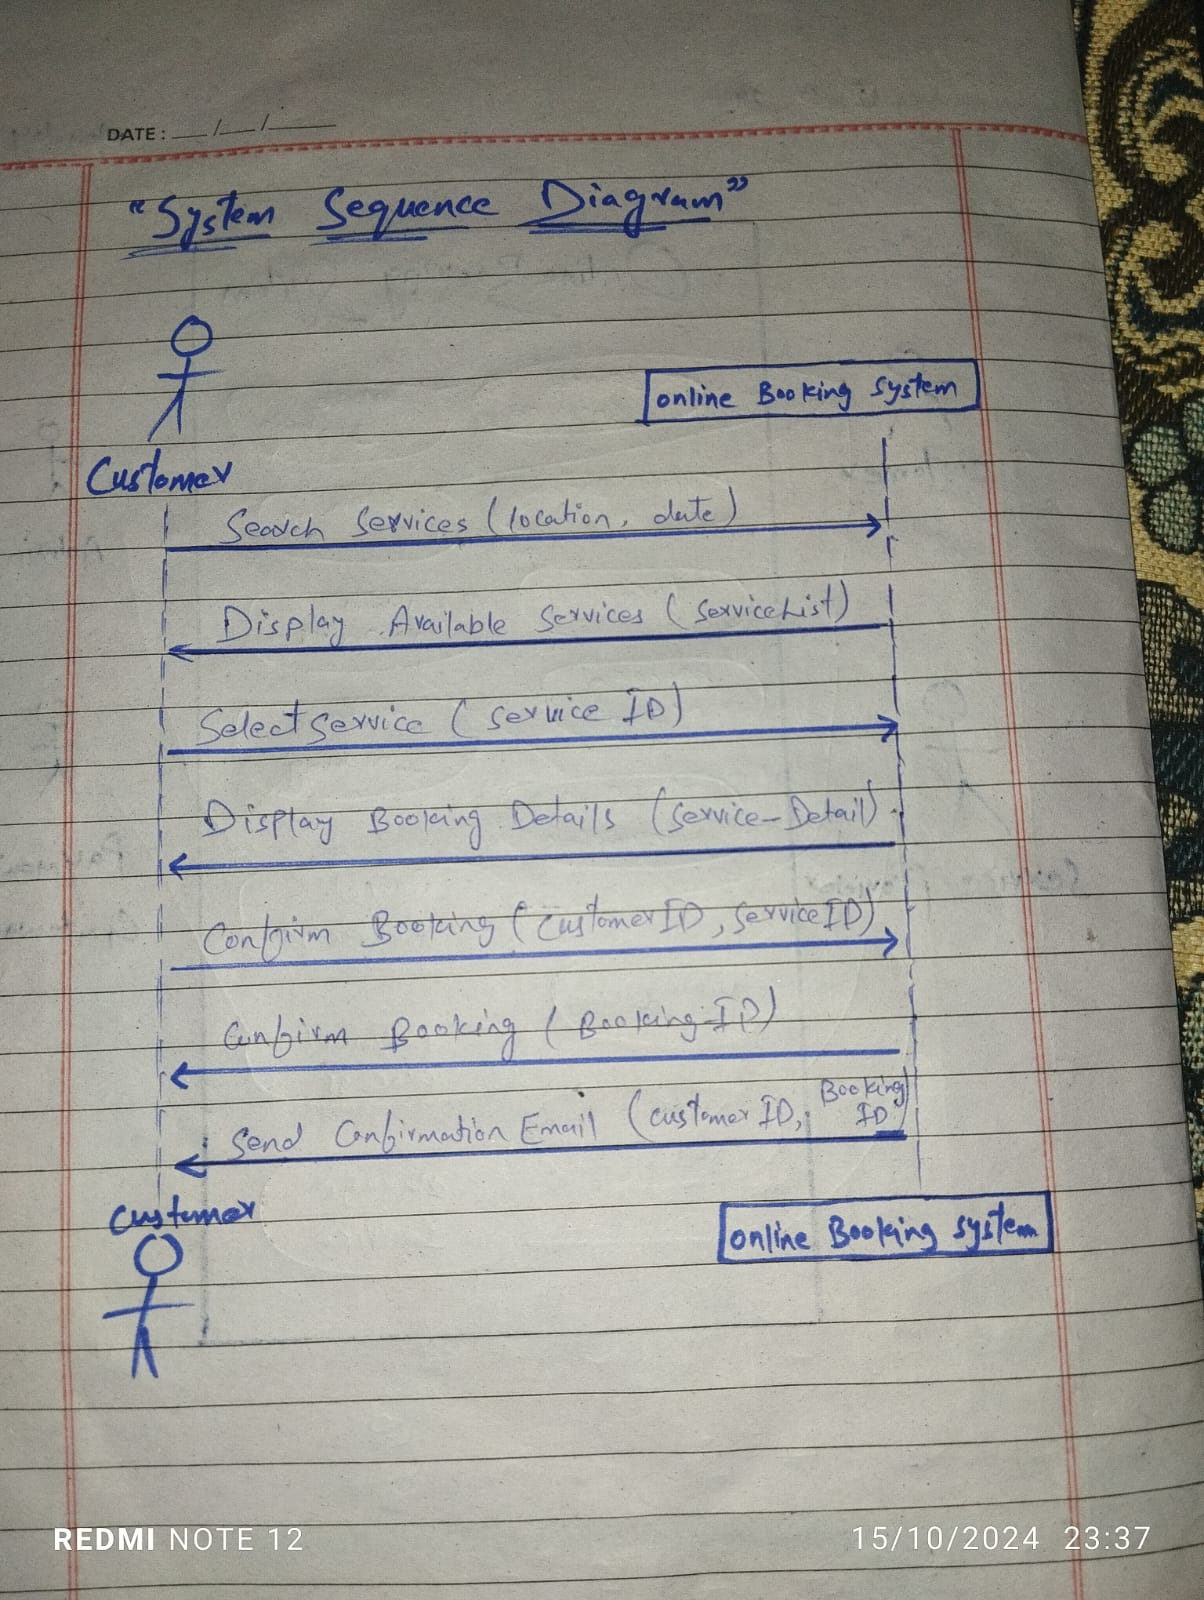 DATE: __/__/____
"System Sequence Diagram"
online Booking System
Customer
Search Services (location, date)
Display Available Services (ServiceList)
Select Service (Service ID)
Display Booking Details (Service-Detail)
Confirm Booking (CustomerID, ServiceID)
Confirm Booking (Booking-ID)
Send Confirmation Email (customer ID, Booking ID)
Customer
online Booking System
REDMI NOTE 12
15/10/2024 23:37